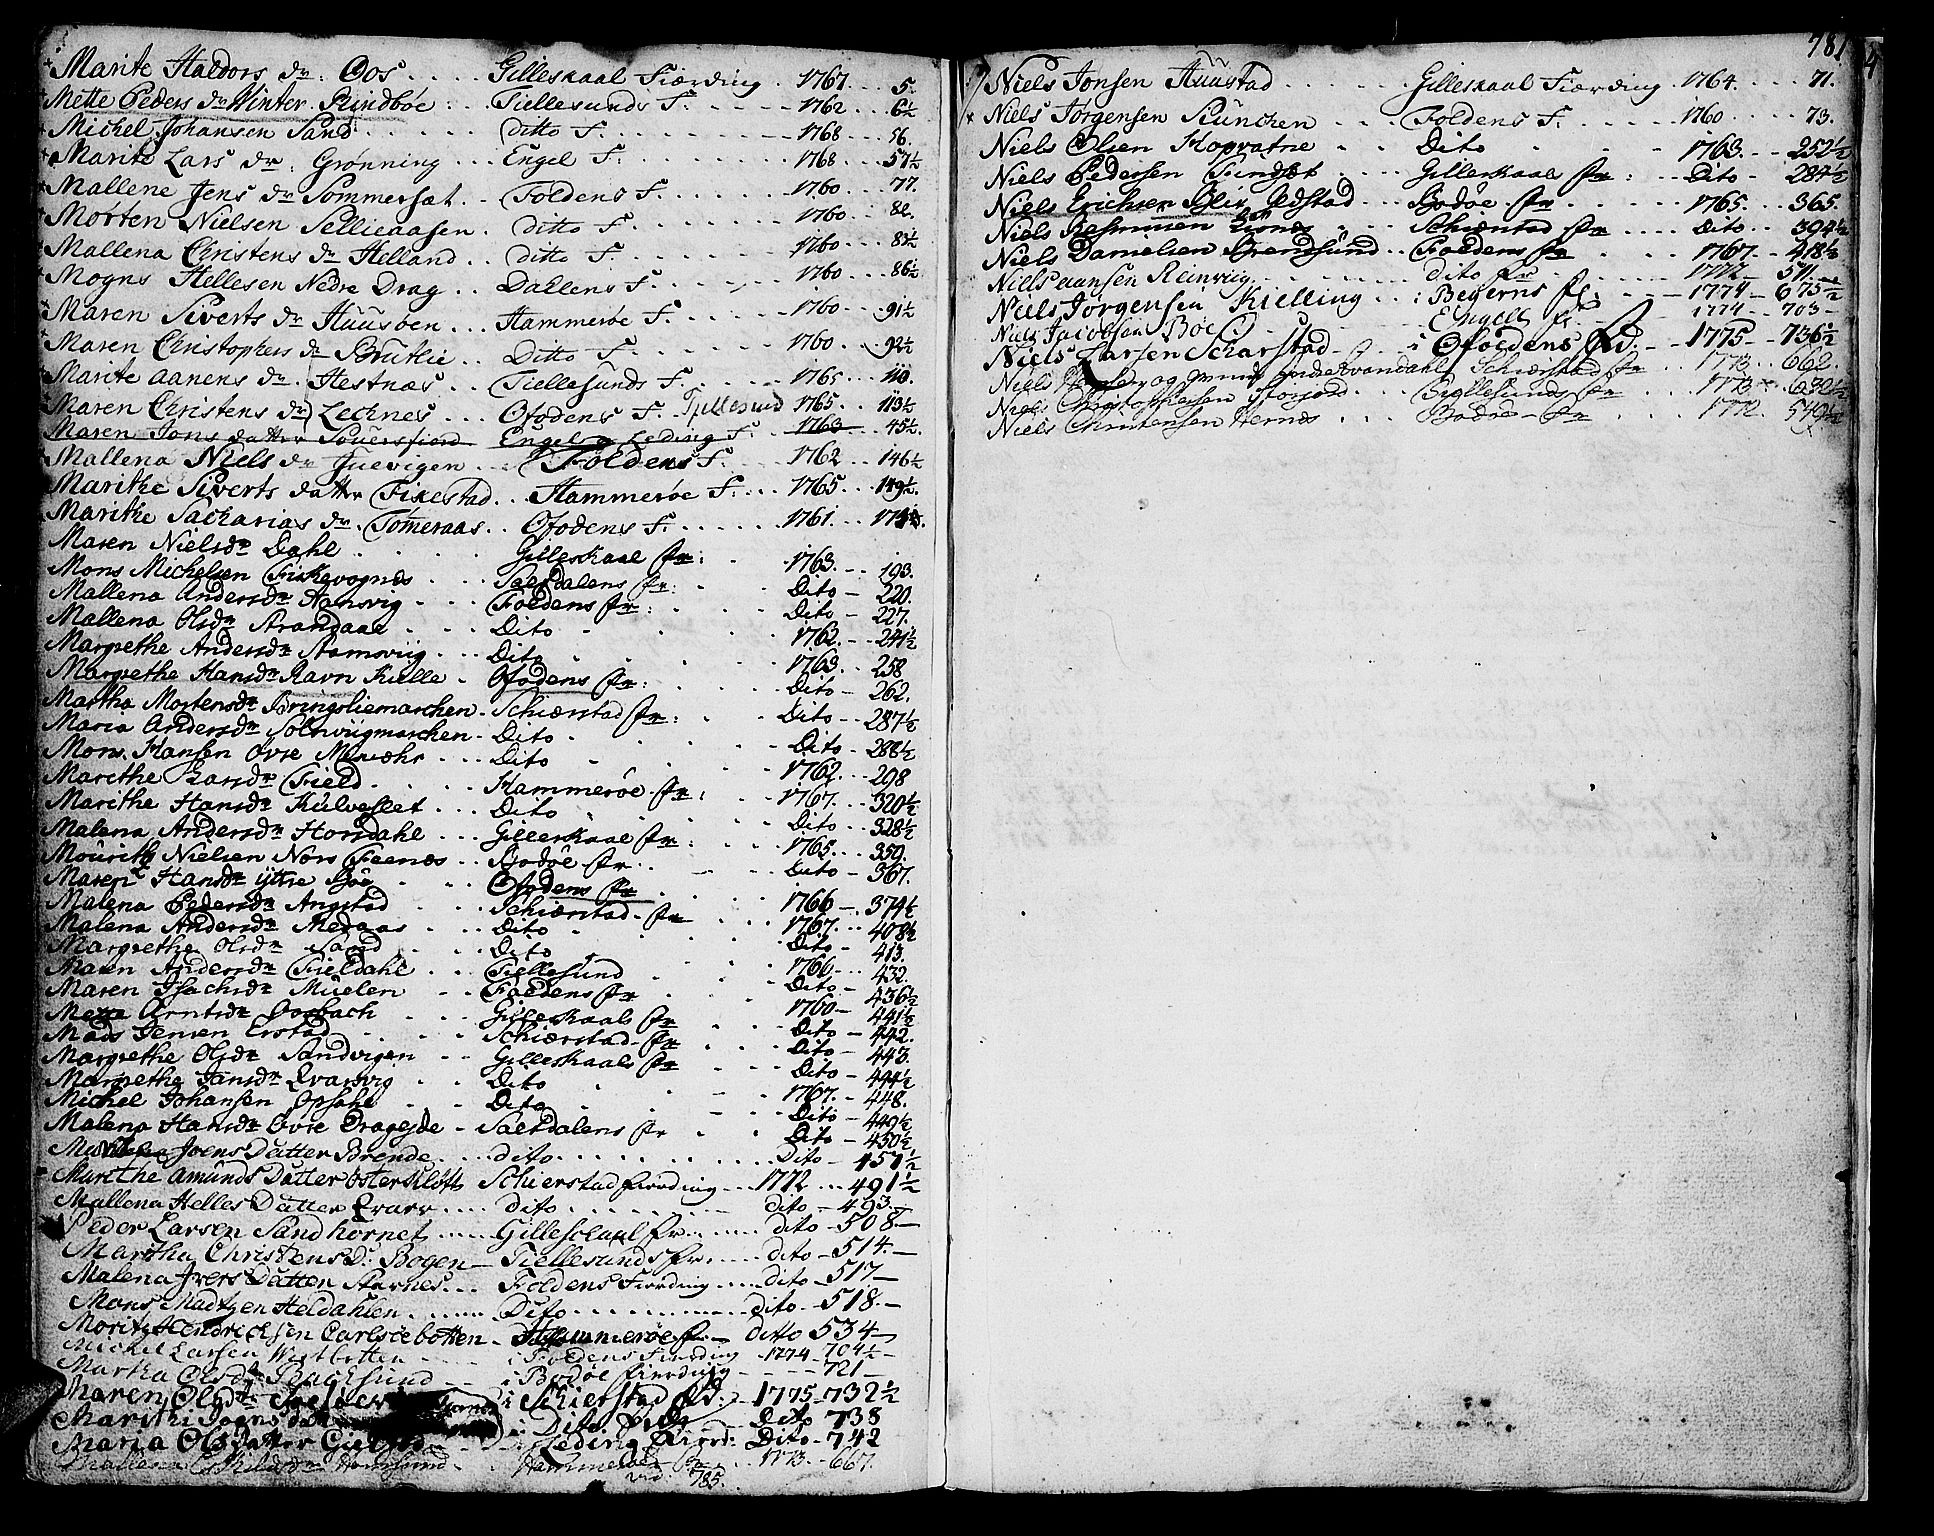 Marite Haldors dr: Oos .... Gilleskaal Fiærding . 1767 ... 5.
Mette Peders dr Winter Rindbøe : .. Tiellesunds F. 1762 ... 6½
Michel Johansen Sand ... ditto F. 1768 ... 56.
Marite Lars dr: Grønning ... Engel F. 1768 ... 57½
Mallene Jens dr Sommersæt .. Foldens F. 1760 ... 77.
Morten Nielsen Sellieaasen .. ditto F. 1760 ... 82.
Mallena Christens dr Helland .. ditto F. 1760 ... 83½
Mogns Hellesen Nedre Drag ... Dallens F. 1760 ... 86½
Maren Siverts dr Huusøen ... Hammerøe F. 1760 ... 91½
Maren Christophers dr Brutlie .. Ditto F. 1760 ... 92½
Marite Aanens dr. Hestnæs ... Tiellesunds F. 1765 ... 110.
Maren Christens dr Lechnes .. Ofodens F. Tjellesund 1765 ... 113½
Maren Jons datter Souersfiord Engel Leding F. 1763 ... 45½
Mallena Niels dr Juevigen ... Foldens F. 1762 ... 146½
Marithe Siverts datter Fixestad .. Hammerøe F. 1765 ... 149½
Marithe Sacharias dr. Tømeraas .. Ofodens F. 1761 ...
Maren Nielsdr Dahl ... Gilleskaal fr: 1763 ... 193.
Mons Michelsen Fiskevognes ... Saltdalens fr: Dito - 220.
Mallena Andersdr Hamsvig ... Foldens fr: Dito - 227.
Mallena Olsdr Strandaae ... Dito 1762 ... 241½
Margrethe Andersdr Stamsviig ... Dito 1763 ... 258
Margrethe Hansdr Ravn Kulle - Ofodens fr: Dito - 262.
Martha Mortensdr Soringsliemarchen - Schierstad fr: Dito ... 287½
Maria Andersdr Solnviigmarchen - Dito Dito - 288½
Mons. Hansen Øvre ... Dito 1762 ... 298
Marethe Larsdr Field ... Hammerøe fr: 1767 ... 320½
Marithe Hansdr Kulveslet ... Dito Dito ... 328½
Malena Andersdr Horsdahl ... Gilleskaal fr: 1765 ... 359.
Mouritz Nielsen Nors Fieenæs .. Bodøe fr. Dito - 367.
Maren Hansdr Yttre Bøe ... Ofodens fr 1766 ... 374½
Malena Pedersdr Angstad ... Schierstad fr 1767 ... 408½
Malena Andersdr Medaas ... Dito Dito - 413.
Margrethe Olsdr Sand ... Dito 1766 ... 432.
Maren Andersdr Fieldahl ... Tiellesund Dito - 436½
Maren Isachsdr Muelen ... Foldens fr 1760 - 441½
Metta Arntsdr Oosbach ... Gilleskaals fr Dito - 442.
Mads Jensen Erstad ... Schierstad fr Dito - 443.
Margrethe Olsdr Sandvigen ... Gilleskaals fr Dito - 444½
Margrethe Jansdr Qvarsvig ... Dito 1767 - 448.
Michel Johansen Opsahl ... Dito Dito - 449½
Malena Hansdr Øvre Dragejde - Saltdalens fr Dito - 450½
Joens Datter Brende ... dito Dito - 457½
Marithe Amunds Datter Østerkløft Schierstad fierding ... 1772 ... 491½
Mallena Helles Datter Qvarv ... dito dito - 493 -
Peder Larsen Sandhornet ... Gillescaal fr. dito - 508 -
Maritha Christens D: Bogen - Tiellesunds fr. dito - 514 -
Malena Ivers Datter Starnes ... Foldens Fierding ... dito - 517 -
Mons Madtzen Heldahlen ... Dito dito - 518 -
Moritz Hendrichsen Carlsøebotten - Hammerøe f. - ditto 534 -
Michel Larsen Westbotten ... i Foldens Fierding - 1774 - 704½ -
Martha Olsdr Bachsund ... i Bodøe fierding - - - 721 -
Maren Olsdr ... i Schierstad Fd. - 1775 - 732½
Marithe Joens dat ... i Dito Dito 738
Maria Olsdatter ... i Leding Fierd: Dito - 742
Mallena Eskildsdr Hornsund ... Hammerøe fr. 1773 - 667.
vid 785.
781
Niels Jonsen Huustad ... Gilleskaal Fiærding 1764 ... 71.
Niels Jørgensen Künchen ... Foldens F. 1760 ... 73.
Niels Olsen Kopvatne .. Dito 1763 ... 252½
Niels Pedersen Sundsæt ... Gilleskaals fr: Dito - 284½
Niels Erichsen Blix Jdstad ... Bodøe fr 1765 ... 365.
Niels Rasmusen Lisnes ... Schierstad fr Dito ... 394½
Niels Danielsen Brendsund ... Foldens fr 1767 ... 418½
Niels Aansen Reinviig ... dito fr 1772 - 511 -
Niels Jørgensen Kielling ... i Begerns fr: 1774 - 675½
Niels Jacobsen Bøe ... Engelt fr. 1774 - 703 -
Niels Larsen Scharstad ... i Ofodens Fd. - 1775 - 736½
Niels ... og ... Qvandahl Schierstad fr .. 1773 - 662.
Niels Christophersen Storjord ... Tiellesunds fr ... 1773 - 630½
Niels Christensen Hernes ... Bodøe fr 1772. 549½